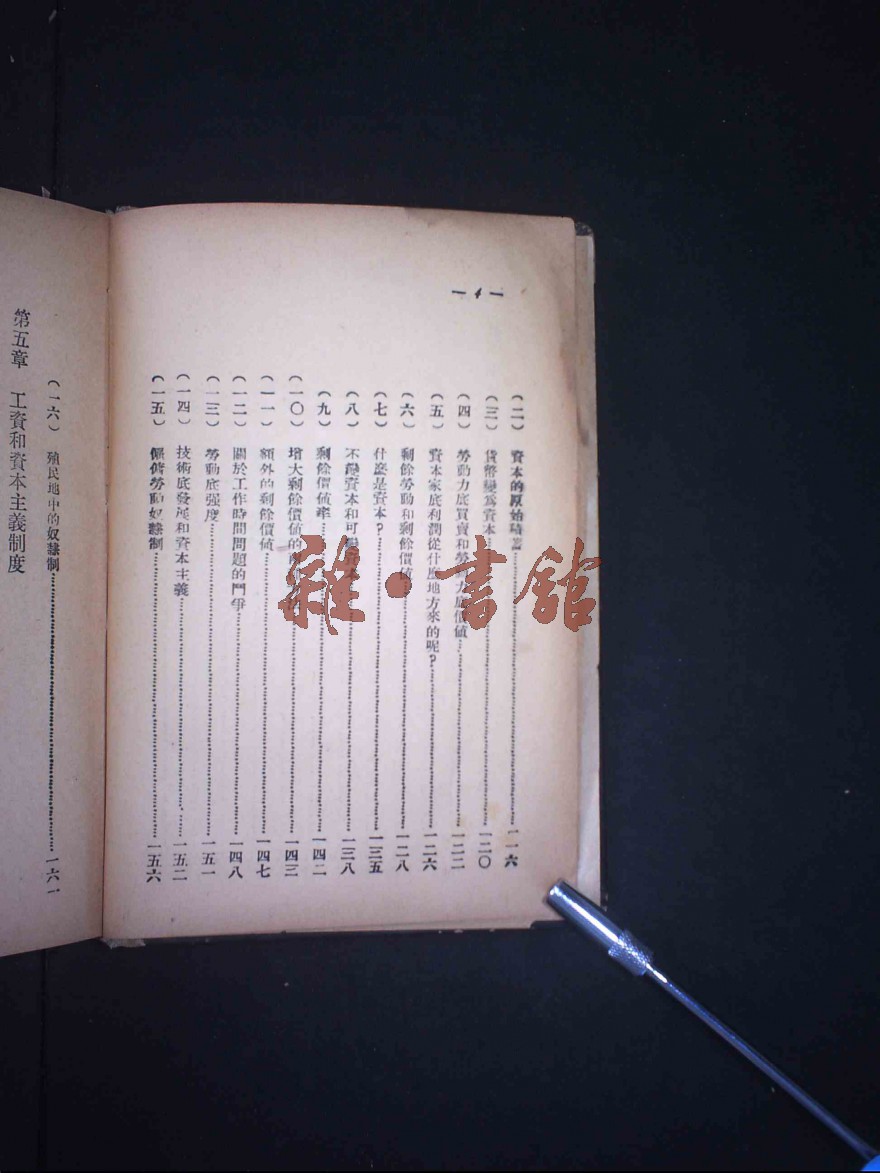 — 4 —
（二） 資本的原始積蓄 一一六
（三） 貨幣變爲資本 一二〇
（四） 勞動力底買賣和勞動力底價值 一二二
（五） 資本家底利潤從什麼地方來的呢？ 一二六
（六） 剩餘勞動和剩餘價值 一二八
（七） 什麼是資本？ 一三五
（八） 不變資本和可變 一三八
（九） 剩餘價值率 一四二
（一〇） 增大剩餘價值的 一四三
（一一） 額外的剩餘價值 一四七
（一二） 關於工作時間問題的鬥爭 一四八
（一三） 勞動底强度 一五一
（一四） 技術底發展和資本主義 一五二
（一五） 僱傭勞動奴隸制 一五六
（一六） 殖民地中的奴隸制 一六一
第五章 工資和資本主義制度
雜·書館